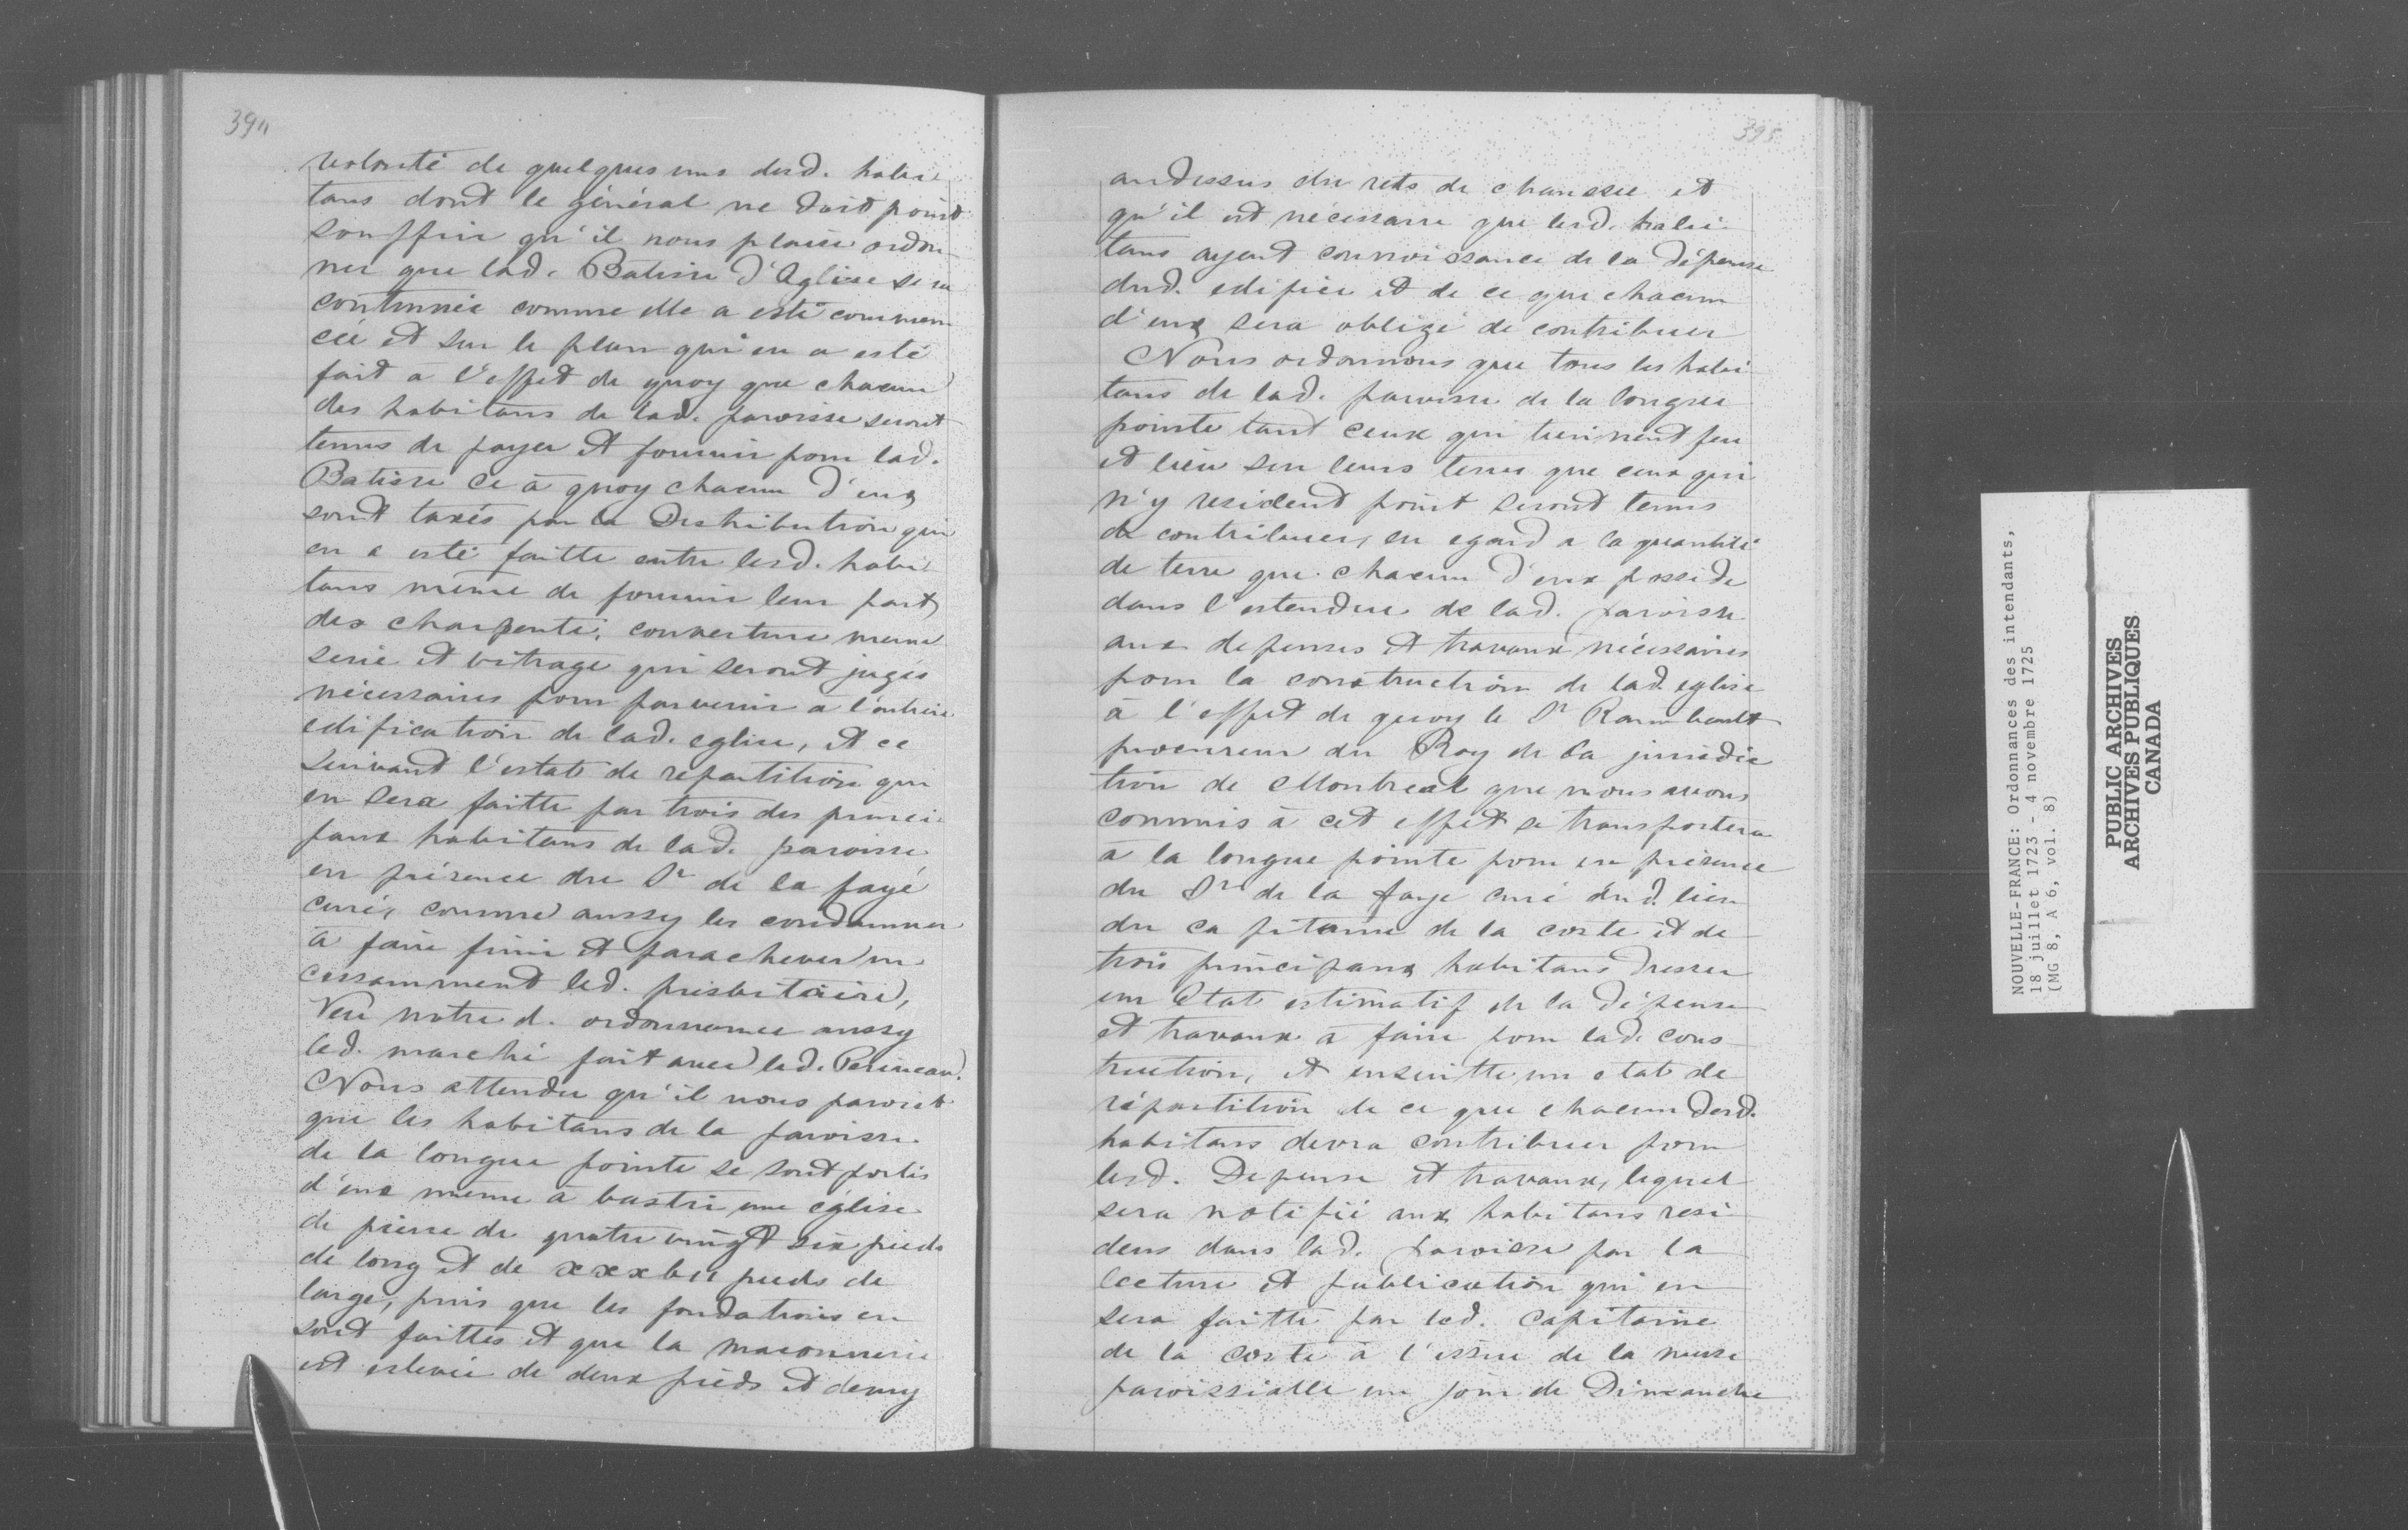 394
volonté de quelques uns desd. habi
tans dont le général ne doit point
souffrir qu'il nous plaise ordon
ner que lad. Batisse d'Eglise sera
continuée comme elle a esté commen
cée et sur le plan qui en a esté
fait a l'effet de quoy que chacun
des habitans de lad. paroisse seront
tenus de payer et fournir pour lad.
Batisse ce à quoy chacun d'eux
sont taxés par la Distribution qui
en a esté faitte entre lesd. habi
tans même de fournir leur part
des charpente, couverture menui
serie et vitrage qui seront jugés
nécessaires pour parvenir a l'entière
edification de lad. eglise, et ce
suivant l'estat de repartition qui
en sera faitte par trois des princi
paux habitans de lad. paroisse
en présence du Sr de la fayé
curé, comme aussy les condamner
à faire finir et parachever in
cessamment led. presbitaire,
Veu notre d. ordonnance aussy
led. marché fait avec led. Perineau.
Nous attendu qu'il nous paroist
que les habitans de la paroisse
de la longue pointe se sont portés
d'eux meme à bastir une église
de pierre de quatre vingt six pieds
de long et de xxxvii pieds de
large, puis que les fondations en
sont faittes et que la maconnerie
est eslevée de deux pieds et demy
395
audessus du rets de chaussée et
qu'il est nécessaire que lesd. habi
tans ayent connoissance de la dépense
dud. edifice et de ce que chacun
d'eux sera obligé de contribuer
Nous ordonnons que tous les habi
tans de lad. paroisse de la longue
pointe tant ceux qui tiennent feu
et lieu sur leurs terres que ceux qui
n'y resident point seront tenus
de contribuer, eu egard a la quantité
de terre que chacun d'eux posside
dans l'estendue de lad. paroisse
aux depenses et travaux nécessaires
pour la construction de lad. eglise
à l'effet de quoy le Sr Raimbault
procureur du Roy de la juridic
tion de Montreal que nous avons
commis à cet effet se transportera
à la longue pointe pour en présence
du Sr de la faye curé dud. lieu
du capitaine de la coste et de
trois principaux habitans dresser
un Etat estimatif de la dépense
et travaux à faire pour lad. cons
truction, et ensuitte un etat de
répartition de ce que chacun desd.
habitans devra contribuer pour
lesd. Depense et travaux, lequel
sera notifié aux habitans resi
dens dans lad. paroisse par la
lecture et publication qui en
sera faitte par led. capitaine
de la coste à l'issue de la messe
paroissialle un jour de Dimanche
NOUVELLE-FRANCE: Ordonnances des intendants,
18 juillet 1723 - 4 novembre 1725
(MG 8, A 6, vol. 8)
PUBLIC ARCHIVES
ARCHIVES PUBLIQUES
CANADA